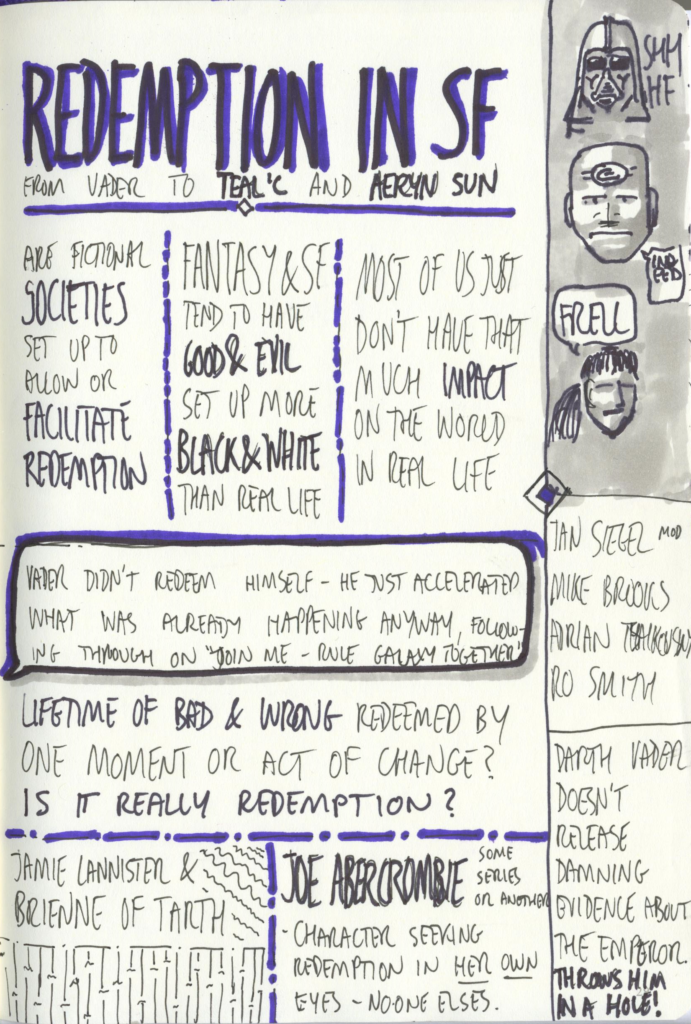 REDEMPTION IN SF
FROM VADER TO TEAL'C AND AERYN SUN
ARE FICTIONAL
SOCIETIES
SET UP TO
ALLOW OR
FACILITATE
REDEMPTION
FANTASY & SF
TEND TO HAVE
GOOD & EVIL
SET UP MORE
BLACK & WHITE
THAN REAL LIFE
MOST OF US JUST
DON'T HAVE THAT
MUCH IMPACT
ON THE WORLD
IN REAL LIFE
VADER DIDN'T REDEEM HIMSELF - HE JUST ACCELERATED
WHAT WAS ALREADY HAPPENING ANYWAY, FOLLOW-
ING THROUGH ON "JOIN ME - RULE GALAXY TOGETHER"
LIFETIME OF BAD & WRONG REDEEMED BY
ONE MOMENT OR ACT OF CHANGE?
IS IT REALLY REDEMPTION?
JAMIE LANNISTER &
BRIENNE OF TARTH
JOE ABERCROMBIE SOME
SERIES
OR ANOTHER
- CHARACTER SEEKING
REDEMPTION IN HER OWN
EYES - NO-ONE ELSES.
IND
EED
FRELL
IAN SIEGEL MOD
MIKE BROOKS
ADRIAN
RO SMITH
DARTH VADER
DOESN'T
RELEASE
DAMNING
EVIDENCE ABOUT
THE EMPEROR.
THROWS HIM
IN A HOLE!